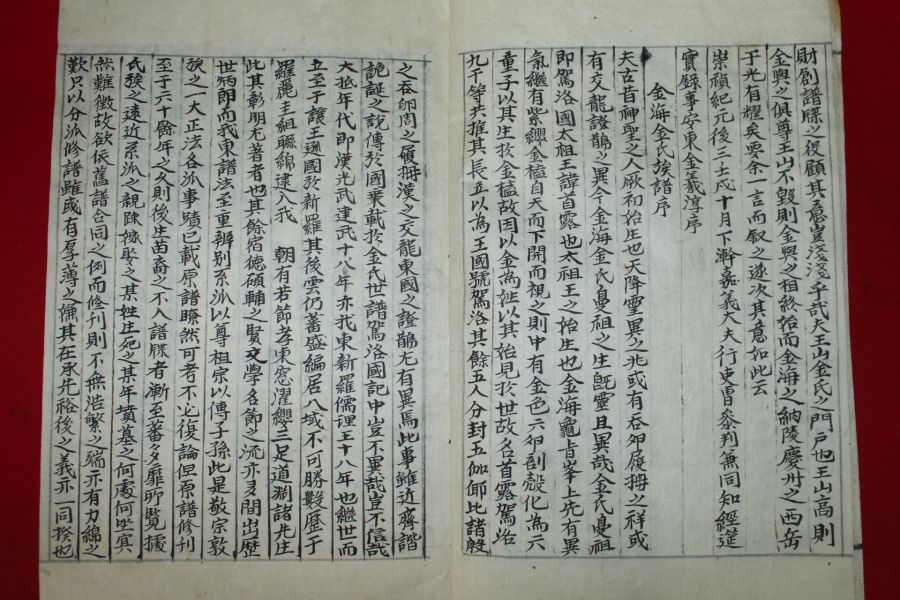 財創譜牒之役顧其意豈淺淺乎哉夫王山金氏之門戶也王山高則
金興之俱尊王山不毀則金興之相終始而金海之納陵慶州之西岳
于光有耀矣要余一言而叙之遂次其意如此云
崇禎紀元後三壬戌十月下澣嘉義大夫行吏曹參判兼同知經筵
實錄事安東金羲淳序
金海金氏族譜序
夫古昔神聖之人厥初始生也天降靈異之兆或有吞卵履拇之祥或
有交龍證鵲之異今金海金氏曼祖之生旣靈且異哉金氏曼祖
即駕洛國太祖王諱首露也太祖王之始生也金海龜旨峯上先有異
氣繼有紫纓金榼自天而下開而視之則中有金色六卵剖殼化為六
童子以其生於金榼故因以金為姓以其始見於世故名首露駕洛
九干等共推其長立以為王國號駕洛其餘五人分封五伽倻比諸殷
之吞卵周之履拇漢之交龍東國之證鵲尤有異焉此事雖近齊諧
詭誕之說傳於國乘載於金氏世譜駕洛國記中豈不異哉豈不信哉
大越年代即漢光武建武十八年亦我東新羅儒理王十八年也繼世而
立至于讓王遜國於新羅其後雲仍蕃盛編居八域不可勝數歷于
羅麗圭組聯綿逮入我 朝有若節孝東窓濯纓三足道淵諸先生
此其彰明尤著者也其餘宿德碩輔之賢文學名節之流亦多間出歷
世炳即而我東譜法至重辨別系派以尊祖宗以傳子孫此是敬宗敦
族之一大正法各派事蹟已載原譜瞭然可考不必復論但原譜修刊
至于六十餘年之久則後生苗裔之不入譜牒者漸至蕃多靡聊覽據
氏族之遠近系派之親陳嫁娶之某姓生死之某年墳墓之何處何坐寘
然難徵故欲依舊譜合同之例而修刊則不無浩繁之端亦有力綿之
歎只以分派修譜雖或有厚薄之嫌其在承先裕後之義亦一同揆也